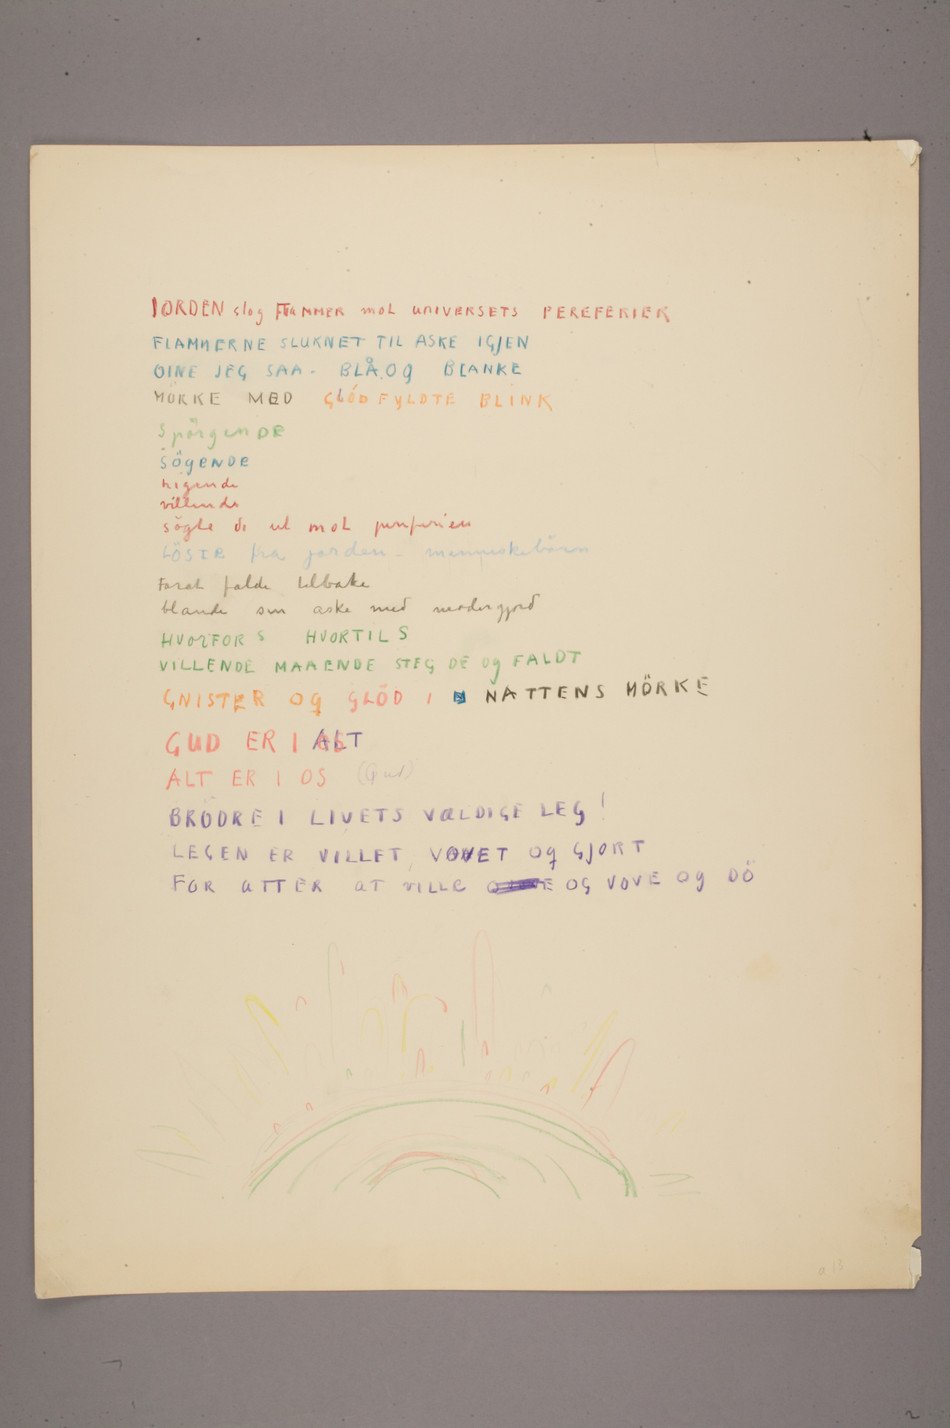 JORDEN slog FLAMMER mot UNIVERSETS PEREFERIER
FLAMMERNE SLUKNET TIL ASKE IGJEN
ÖINE JEG SAA - BLÅ OG BLANKE
MÖRKE MED GLÖDFYLDTE BLINK
SpörgenDE
SögeNDe
higende
villende
sögte de ut mot periferien
LÖSTE fra jorden - menneskebörn
Forat falde tilbake
blande sin aske med modergjord
HVORFOR S HVORTIL S
VILLENDE MAAENDE STEG DE og FALDT
GNISTER OG GLÖD I NATTENS MÖRKE
GUD ER I ALT
ALT ER I OS (Gud)
BRÖDRE I LIVETS VÆLDIGE LEG!
LEGEN ER VILLET, VOVET og GJORT
FOR ATTER AT VILLE OG VOVE og DÖ